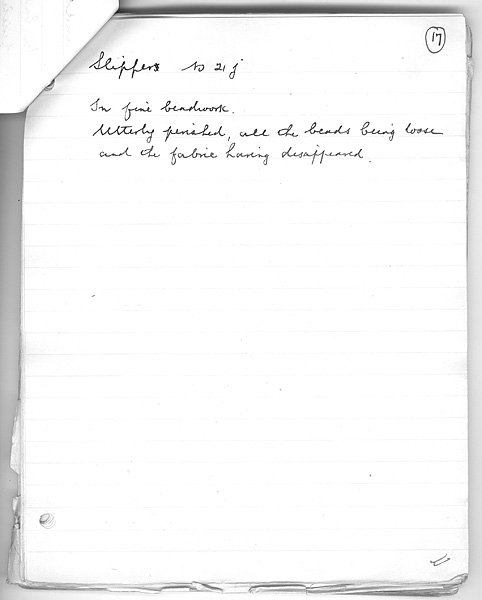 17
Slippers No 21 j
In fine beadwork.
Utterly perished, all the beads being loose
and the fabric having disappeared.